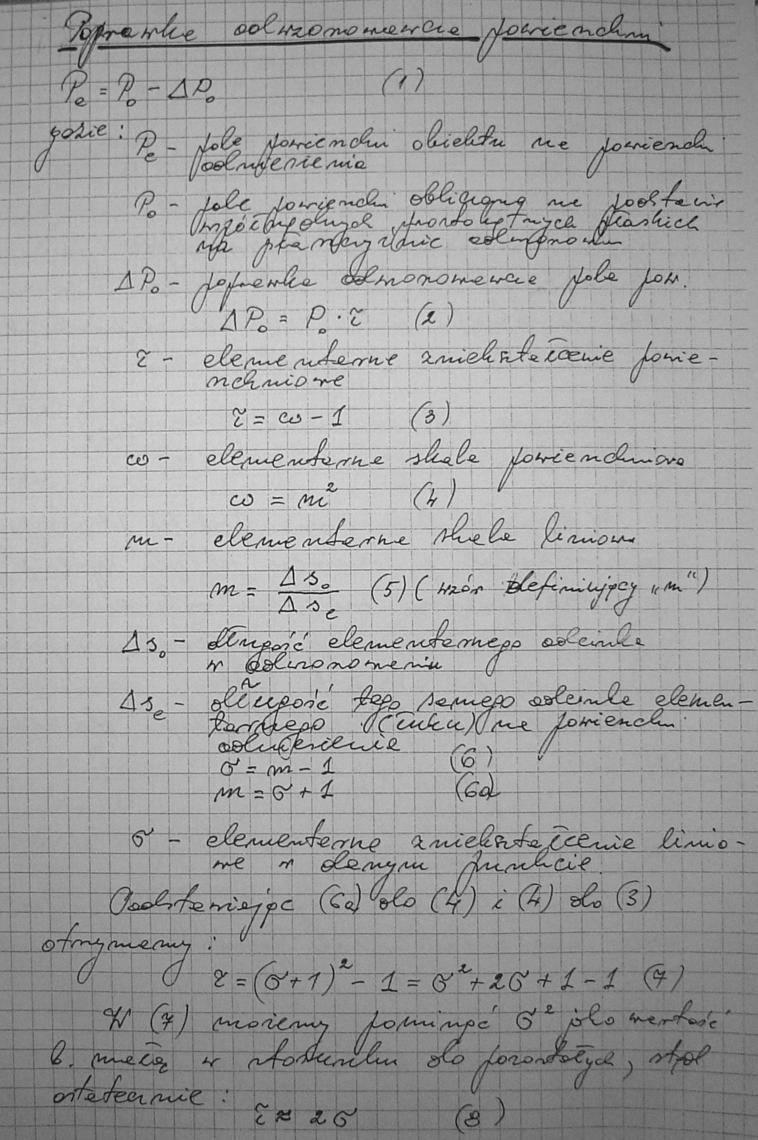 Poprawka odwzorowawcza powierzchni
Pe = Po - ΔPo (1)
gdzie: Pe - pole powierzchni obiektu na powierzchni
odniesienia
Po - pole powierzchni obliczone na podstawie
współrzędnych prostokątnych płaskich
na płaszczyźnie odwzorowania
ΔPo - poprawka odwzorowawcza pola pow.
ΔPo = Po · τ (2)
τ - elementarne zniekształcenie powie-
rzchniowe
τ = ω - 1 (3)
ω - elementarna skala powierzchniowa
ω = m² (4)
m - elementarna skala liniowa
m = Δso / Δse (5) (wzór definiujący „m")
Δso - długość elementarnego odcinka
w odwzorowaniu
Δse - długość tego samego odcinka elemen-
tarnego (łuku) na powierzchni
odniesienia
σ = m - 1 (6)
m = σ + 1 (6a)
σ - elementarne zniekształcenie linio-
we w danym punkcie.
Podstawiając (6a) do (4) i (4) do (3)
otrzymamy:
τ = (σ+1)² - 1 = σ² + 2σ + 1 - 1 (7)
W (7) możemy pominąć σ² jako wartość
b. małą w stosunku do pozostałych, stąd
ostatecznie:
τ ≈ 2σ (8)